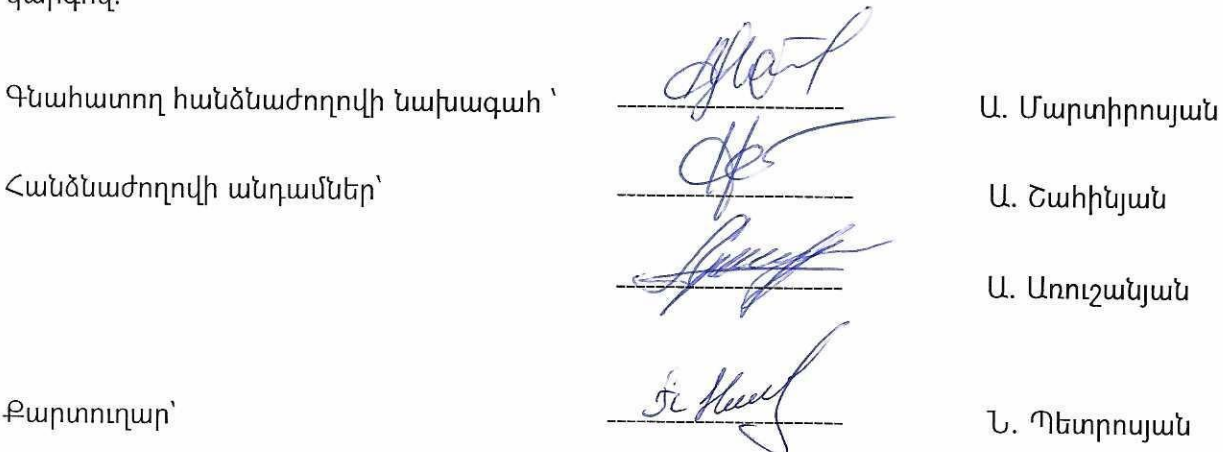 կարգով:
Գնահատող հանձնաժողովի նախագահ ՝ Ա. Մարտիրոսյան
Հանձնաժողովի անդամներ՝ Ա. Շահինյան
Ա. Առուշանյան
Քարտուղար՝ Ն. Պետրոսյան